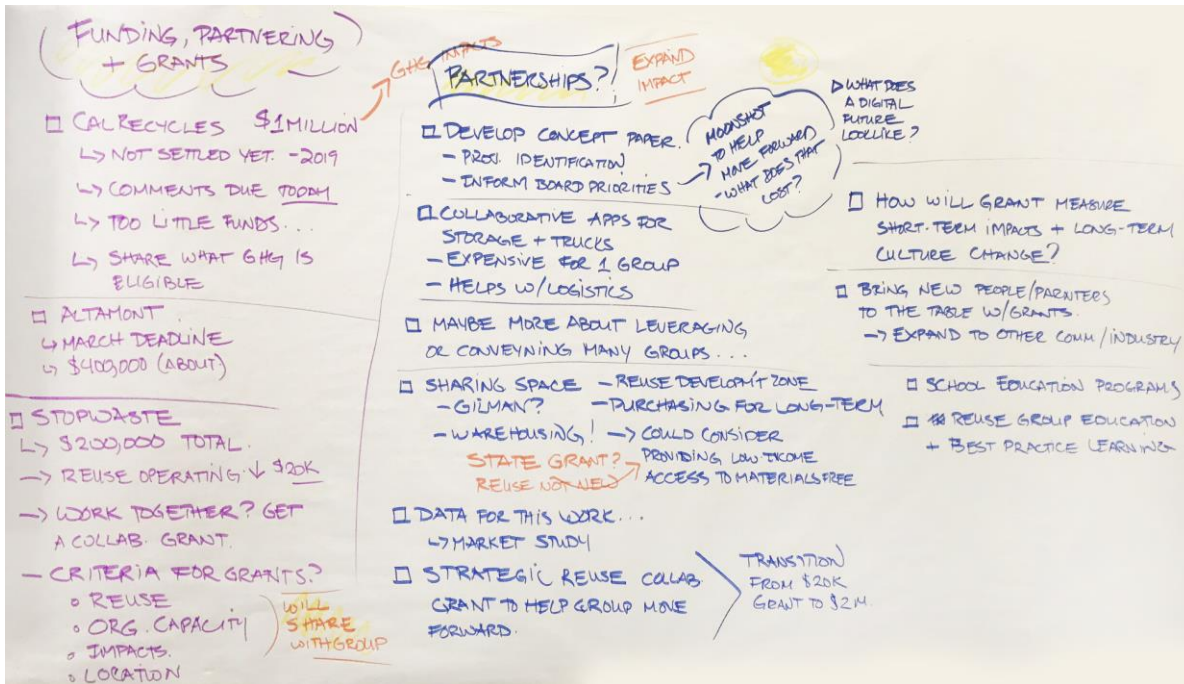 FUNDING, PARTNERING
+ GRANTS
GHG IMPACTS
□ CALRECYCLES $1 MILLION
↳ NOT SETTLED YET. - 2019
↳ COMMENTS DUE TODAY
↳ TOO LITTLE FUNDS...
↳ SHARE WHAT GHG IS
ELIGIBLE
□ ALTAMONT
↳ MARCH DEADLINE
↳ $400,000 (ABOUT)
□ STOPWASTE
↳ $200,000 TOTAL.
→ REUSE OPERATING ↓ $20K
→ WORK TOGETHER? GET
A COLLAB. GRANT.
- CRITERIA FOR GRANTS?
○ REUSE
○ ORG. CAPACITY
○ IMPACTS.
○ LOCATION
WILL
SHARE
WITH GROUP
PARTNERSHIPS?
EXPAND
IMPACT
□ DEVELOP CONCEPT PAPER.
- PROJ. IDENTIFICATION
- INFORM BOARD PRIORITIES →
MOONSHOT
TO HELP
MOVE FORWARD
- WHAT DOES THAT
COST?
▷ WHAT DOES
A DIGITAL
FUTURE
LOOK LIKE?
□ COLLABORATIVE APPS FOR
STORAGE + TRUCKS
- EXPENSIVE FOR 1 GROUP
- HELPS W/LOGISTICS
□ MAYBE MORE ABOUT LEVERAGING
OR CONVEYNING MANY GROUPS...
□ SHARING SPACE - REUSE DEVELOPM'T ZONE
- GILMAN? - PURCHASING FOR LONG-TERM
- WAREHOUSING! → COULD CONSIDER
PROVIDING LOW INCOME
ACCESS TO MATERIALS FREE
STATE GRANT?
REUSE NOT NEW
□ DATA FOR THIS WORK...
↳ MARKET STUDY
□ STRATEGIC REUSE COLLAB.
GRANT TO HELP GROUP MOVE
FORWARD.
TRANSITION
FROM $20K
GRANT TO $2M.
□ HOW WILL GRANT MEASURE
SHORT-TERM IMPACTS + LONG-TERM
CULTURE CHANGE?
□ BRING NEW PEOPLE/PARNTEERS
TO THE TABLE W/GRANTS.
→ EXPAND TO OTHER COMM/INDUSTRY
□ SCHOOL EDUCATION PROGRAMS
□ REUSE GROUP EDUCATION
+ BEST PRACTICE LEARNING